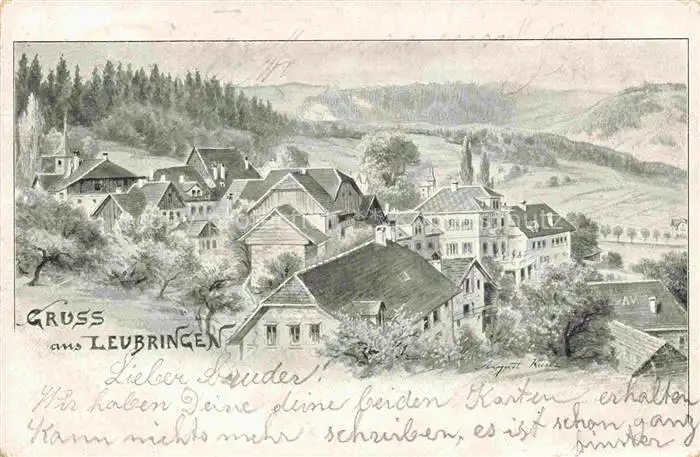 GRUSS
aus LEUBRINGEN
Lieber Bruder!
Wir haben Deine deine beiden Karten erhalten
Kann nichts mehr schreiben, es ist schon ganz
finster